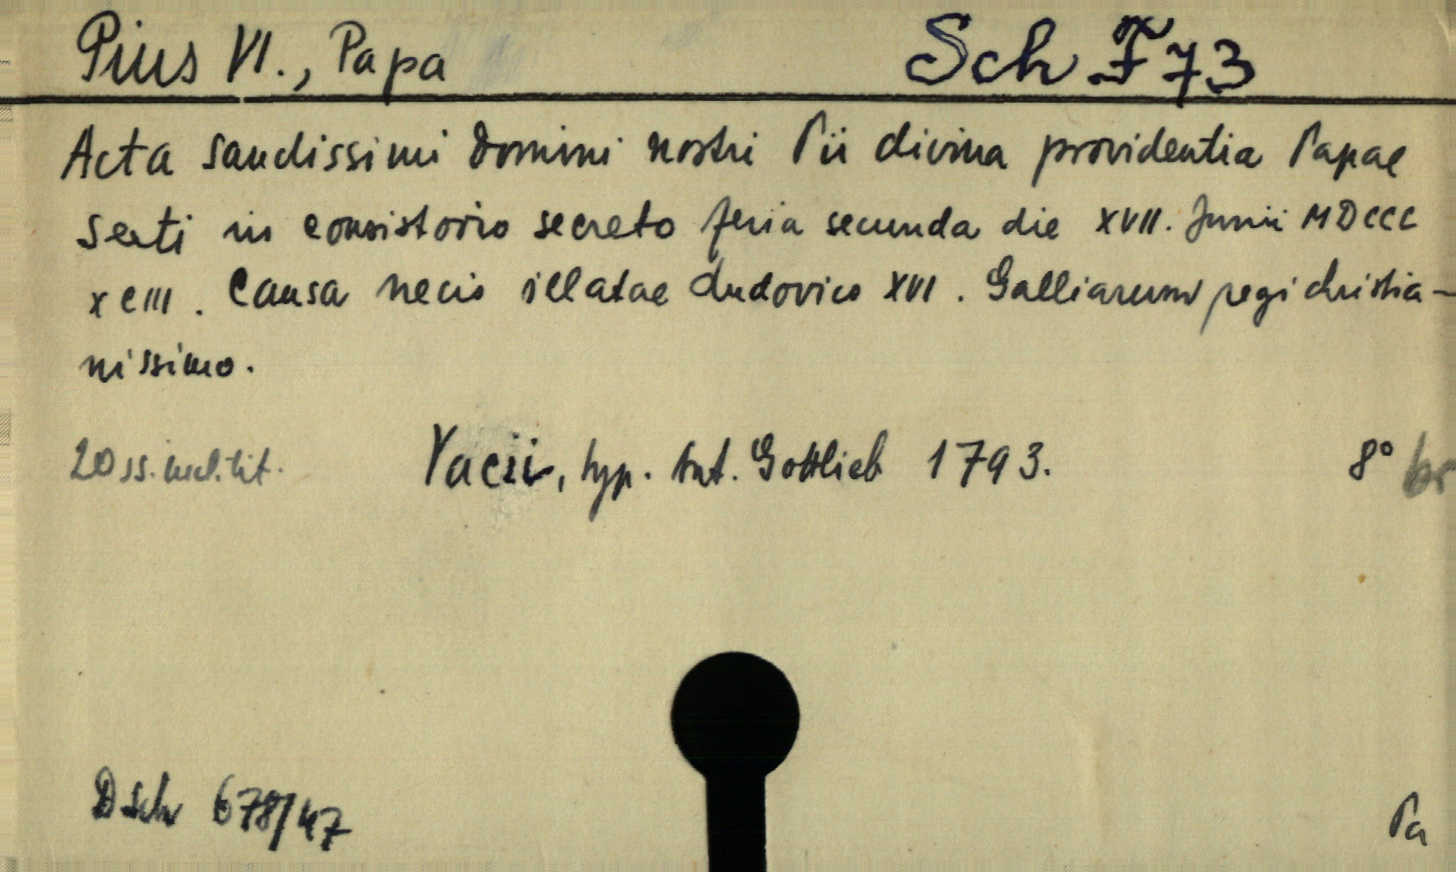 Pius VI., Papa Sch F 73
Acta sanctissimi domini nostri Pii divina providentia Papae
Sexti in consistorio secreto feria secunda die XVII. Junii MDCCC
XCIII. Causa necis illatae Ludovico XVI. Galliarum regi christia-
nissimo.
20 ss. incl. tit. Vacii, typ. Ant. Gottlieb 1793. 8° br
D Sch 678/47 Pa